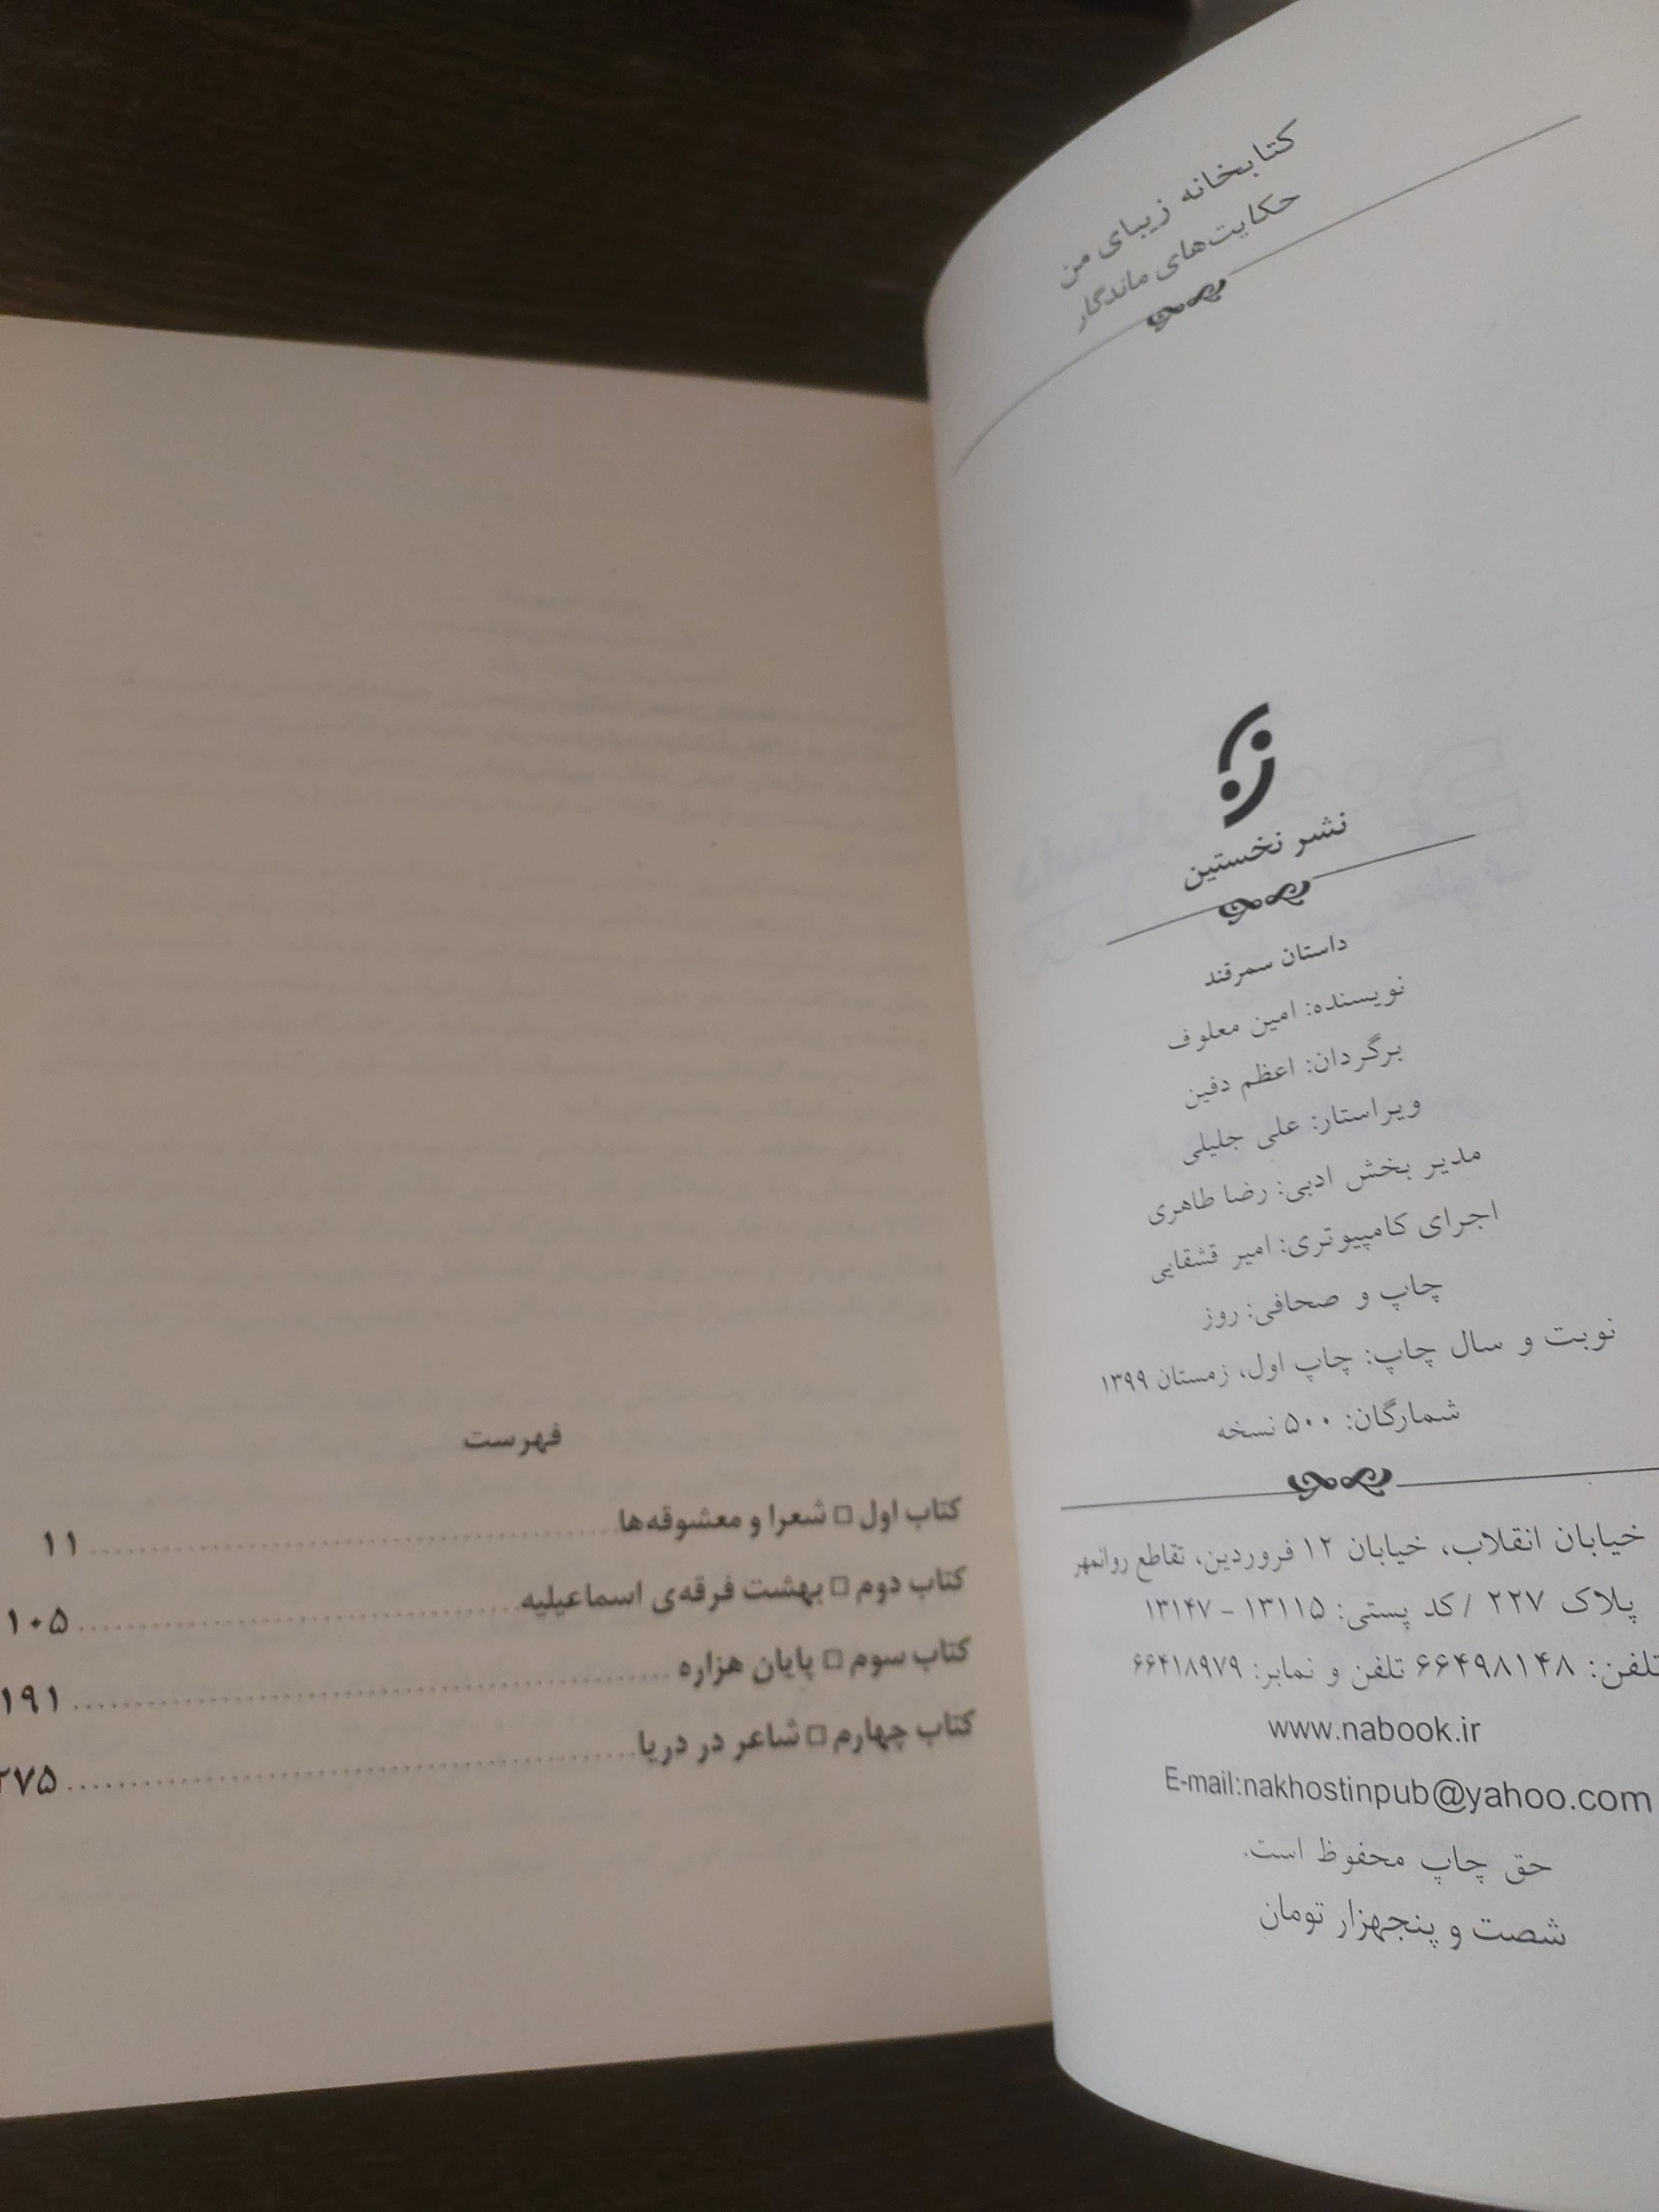 کتابخانه زیبای من
حکایت‌های ماندگار
نشر نخستین
داستان سمرقند
نویسنده: امین معلوف
برگردان: اعظم دفین
ویراستار: علی جلیلی
مدیر بخش ادبی: رضا طاهری
اجرای کامپیوتری: امیر قشقایی
چاپ و صحافی: روز
نوبت و سال چاپ: چاپ اول، زمستان ۱۳۹۹
شمارگان: ۵۰۰ نسخه
خیابان انقلاب، خیابان ۱۲ فروردین، تقاطع روانمهر
پلاک ۲۲۷ / کد پستی: ۱۳۱۱۵ - ۱۳۱۴۷
تلفن: ۶۶۴۹۸۱۴۸ تلفن و نمابر: ۶۶۴۱۸۹۷۹
www.nabook.ir
E-mail:nakhostinpub@yahoo.com
حق چاپ محفوظ است.
شصت و پنجهزار تومان
فهرست
کتاب اول □ شعرا و معشوقه‌ها ........ ۱۱
کتاب دوم □ بهشت فرقه‌ی اسماعیلیه ........ ۱۰۵
کتاب سوم □ پایان هزاره ........ ۱۹۱
کتاب چهارم □ شاعر در دریا ........ ۲۷۵